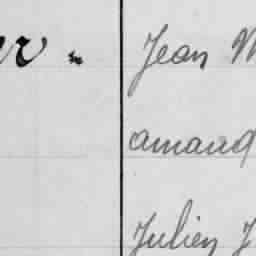 Jean
amand
Julien J